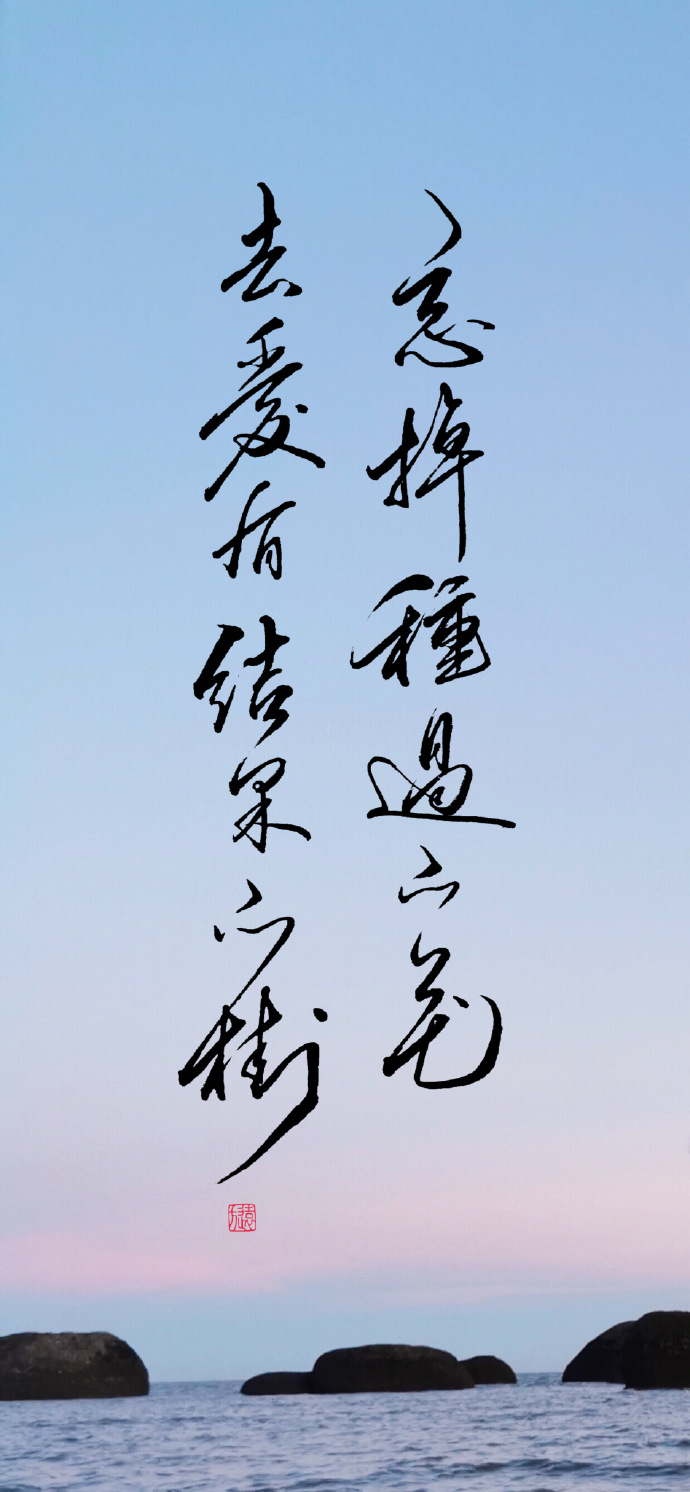 忘掉種過的花
去愛有結果的樹